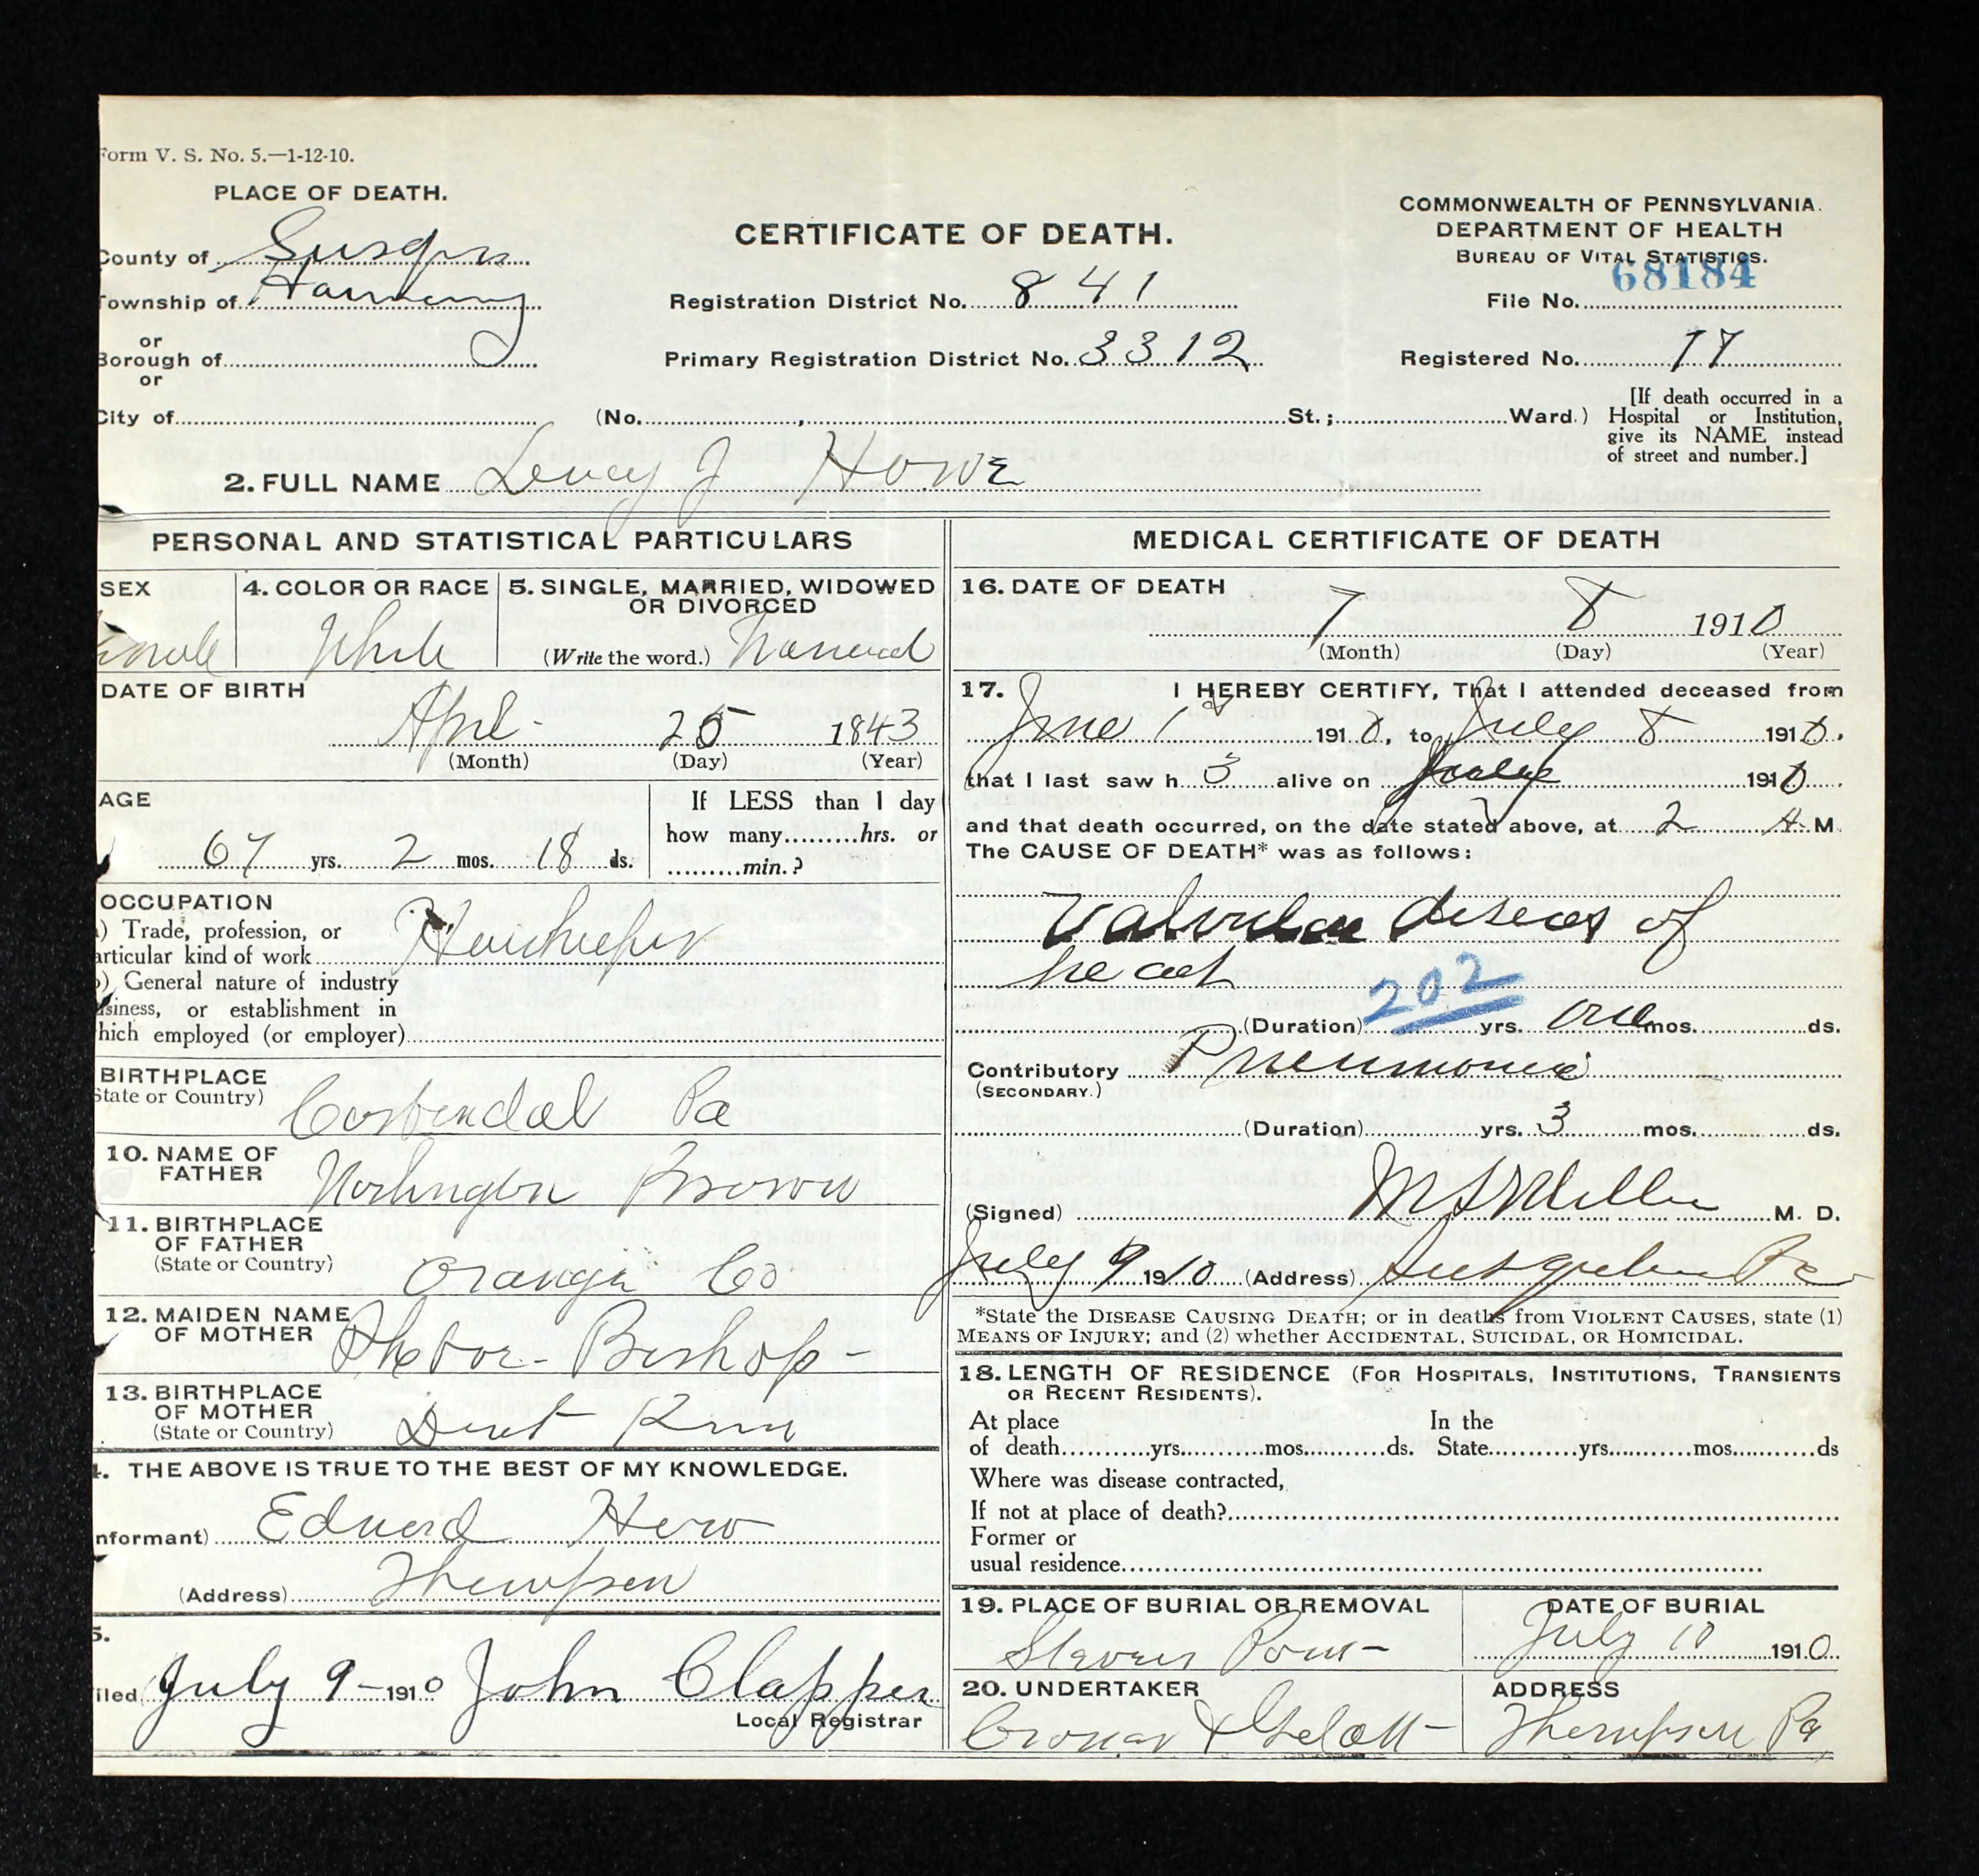 Form V. S. No. 5.—1-12-10.
PLACE OF DEATH.
County of Susqna
Township of Harmony
or
Borough of
or
City of
CERTIFICATE OF DEATH.
Registration District No. 841
Primary Registration District No. 3312
(No. , St.; Ward.)
COMMONWEALTH OF PENNSYLVANIA.
DEPARTMENT OF HEALTH
BUREAU OF VITAL STATISTICS.
68184
File No.
Registered No. 17
[If death occurred in a
Hospital or Institution,
give its NAME instead
of street and number.]
2. FULL NAME Lucy J Howe
PERSONAL AND STATISTICAL PARTICULARS
SEX
4. COLOR OR RACE White
5. SINGLE, MARRIED, WIDOWED
OR DIVORCED
(Write the word.) Married
DATE OF BIRTH
April 25 1843
(Month) (Day) (Year)
AGE
67 yrs. 2 mos. 18 ds.
If LESS than 1 day
how many hrs. or
min.?
OCCUPATION
) Trade, profession, or
articular kind of work Houskeeper
) General nature of industry
usiness, or establishment in
hich employed (or employer)
BIRTHPLACE
State or Country) Carbendal Pa
10. NAME OF
FATHER Worlington Brown
11. BIRTHPLACE
OF FATHER
(State or Country) Orange Co
12. MAIDEN NAME
OF MOTHER Phebor - Bishop -
13. BIRTHPLACE
OF MOTHER
(State or Country)
THE ABOVE IS TRUE TO THE BEST OF MY KNOWLEDGE.
nformant) Edward How
(Address) Thompson
5.
iled July 9 - 1910 John Clapper
Local Registrar
MEDICAL CERTIFICATE OF DEATH
16. DATE OF DEATH
7 8 1910
(Month) (Day) (Year)
17. I HEREBY CERTIFY, That I attended deceased from
June 1st 1910, to July 8 1910.
that I last saw h alive on July 1910
and that death occurred, on the date stated above, at 2 A M.
The CAUSE OF DEATH* was as follows:
Valvular diseas of
heart
202
(Duration) yrs. one mos. ds.
Contributory Pneumonia
(SECONDARY.)
(Duration) yrs. 3 mos. ds.
(Signed) M S Miller M. D.
July 9 1910 (Address) Susqueha Pa
*State the DISEASE CAUSING DEATH; or in deaths from VIOLENT CAUSES, state (1)
MEANS OF INJURY; and (2) whether ACCIDENTAL, SUICIDAL, OR HOMICIDAL.
18. LENGTH OF RESIDENCE (FOR HOSPITALS, INSTITUTIONS, TRANSIENTS
OR RECENT RESIDENTS).
At place In the
of death yrs. mos. ds. State yrs. mos. ds
Where was disease contracted,
If not at place of death?
Former or
usual residence
19. PLACE OF BURIAL OR REMOVAL
Stevens Point
DATE OF BURIAL
July 10 1910
20. UNDERTAKER
Cronar & Gelatt -
ADDRESS
Thompson Pa